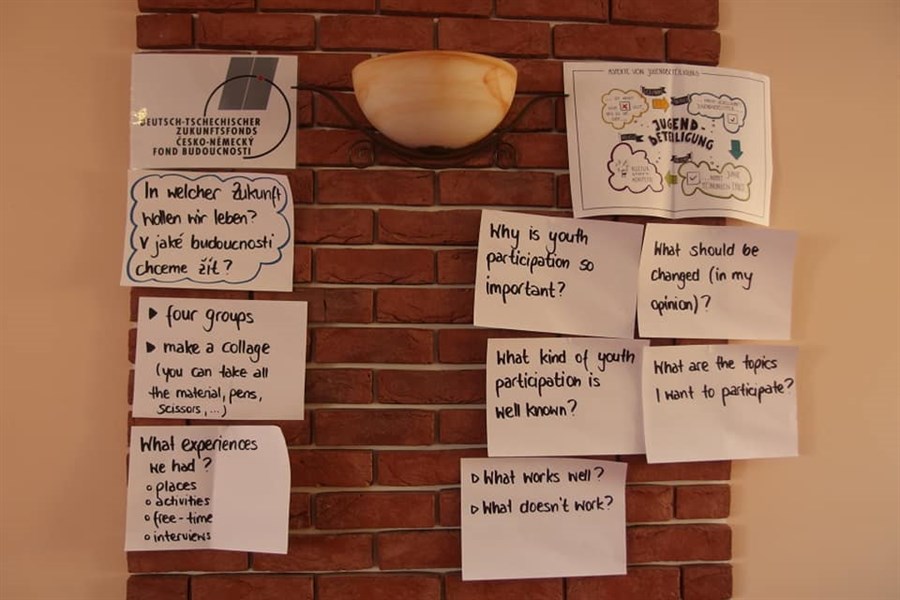 DEUTSCH-TSCHECHISCHER
ZUKUNFTSFONDS
ČESKO-NĚMECKÝ
FOND BUDOUCNOSTI
In welcher Zukunft
wollen wir leben?
V jaké budoucnosti
chceme žít?
four groups
make a collage
(you can take all
the material, pens,
scissors,...)
What experiences
we had?
places
activities
free-time
interviews
JUGEND-
BETEILIGUNG
Why is youth
participation so
important?
What should be
changed (in my
opinion)?
What kind of youth
participation is
well known?
What are the topics
I want to participate?
What works well?
What doesn't work?